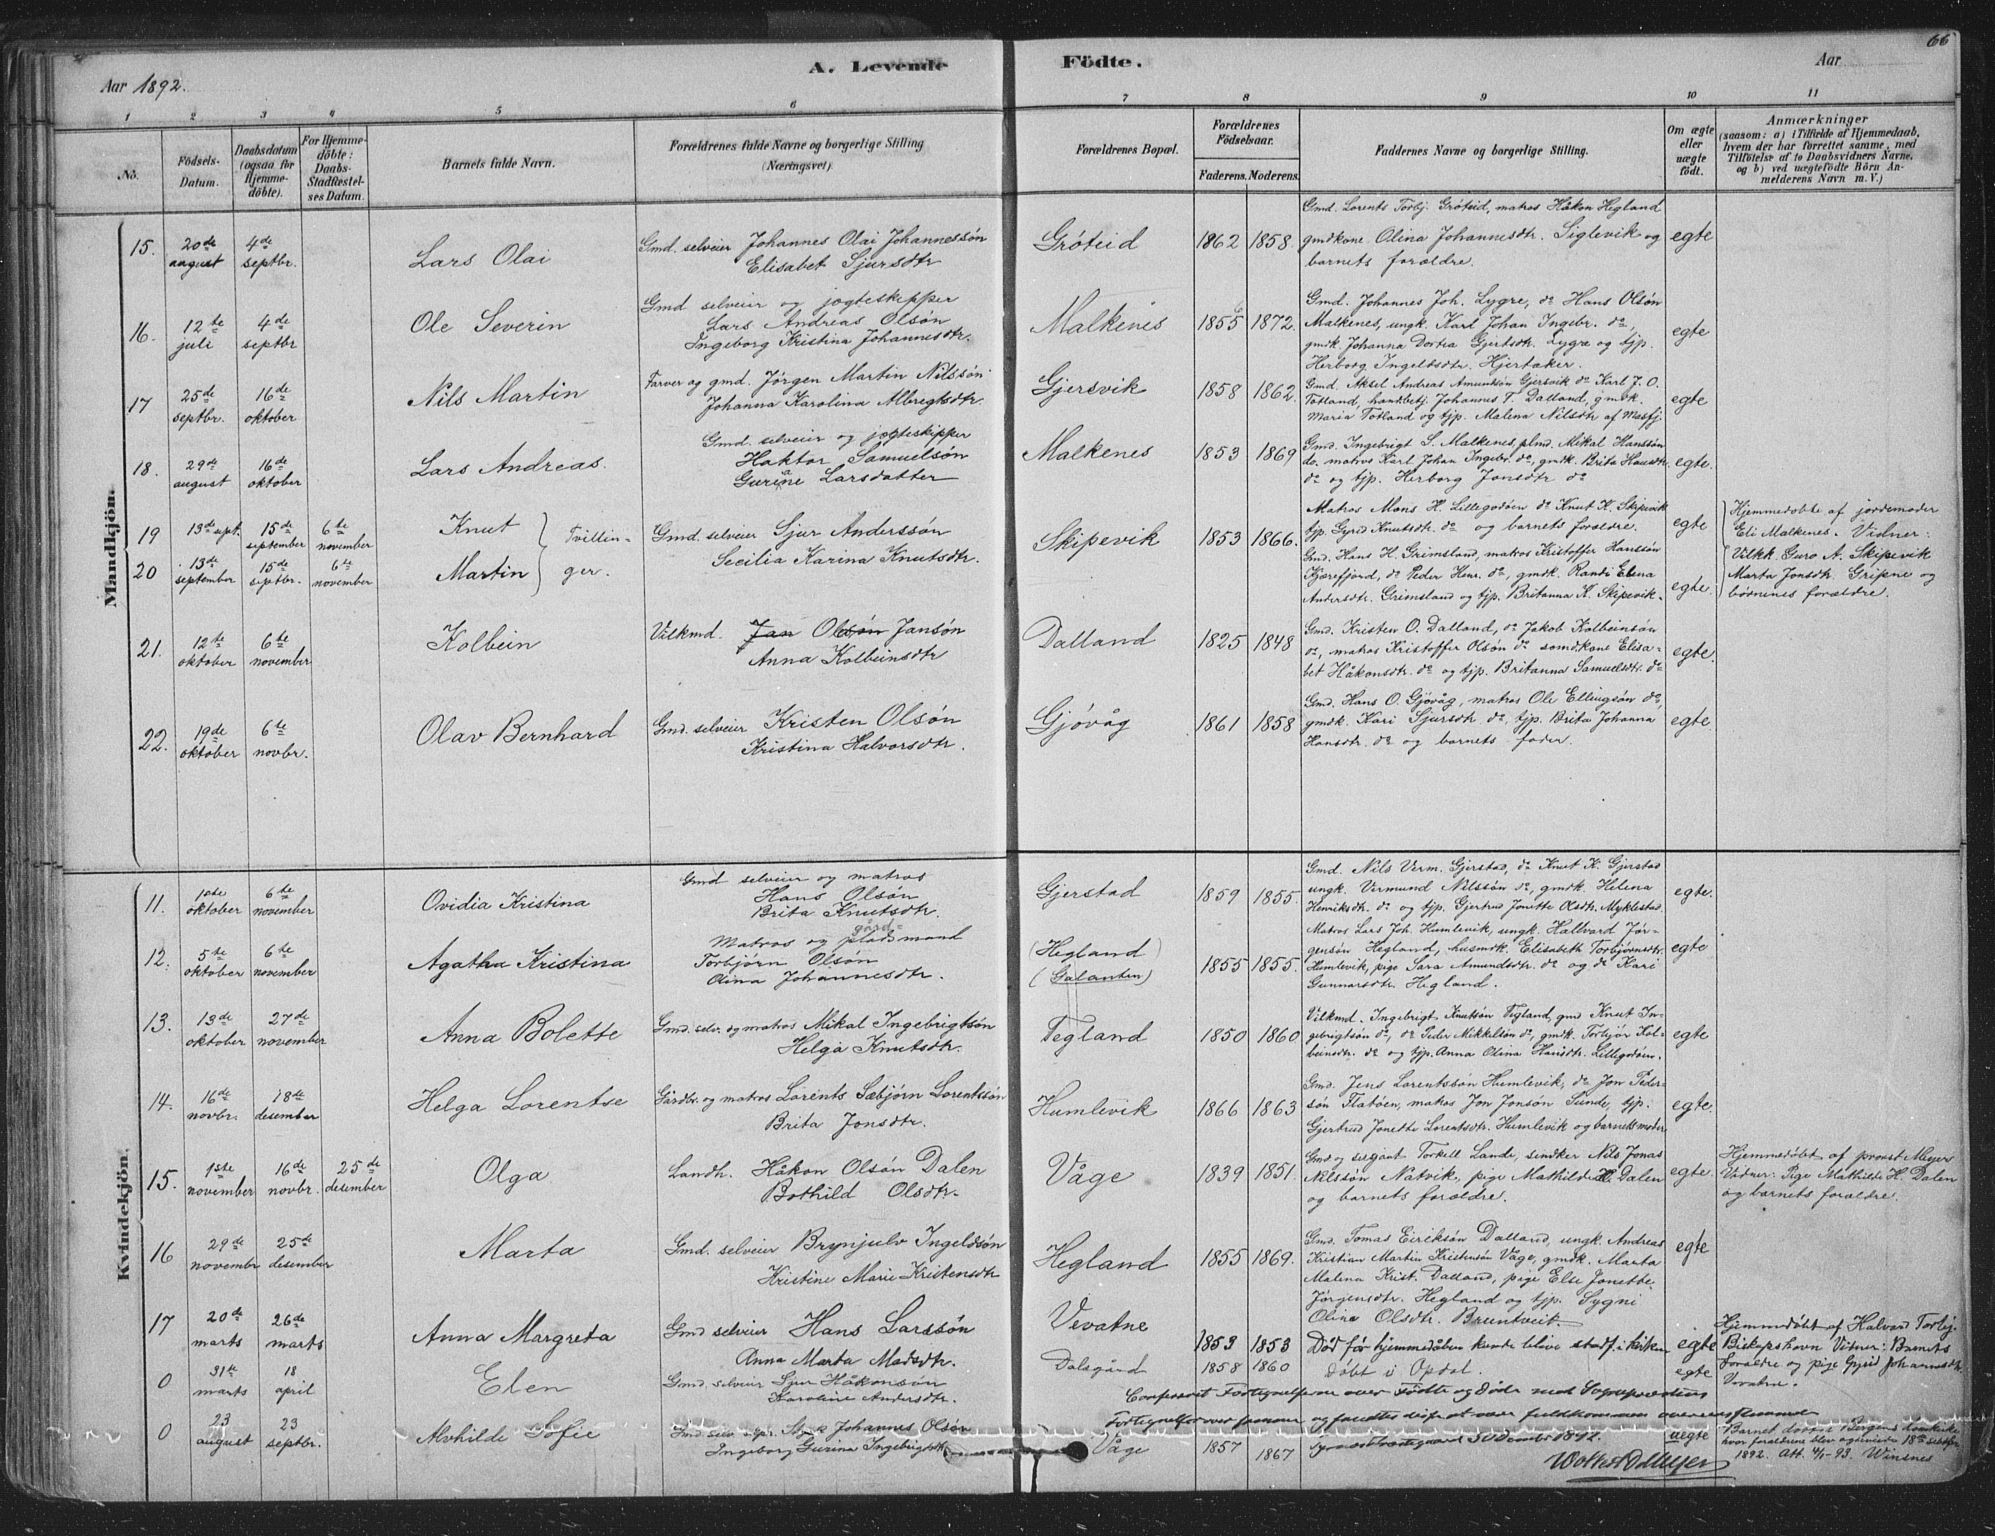 66
Aar 1892.
A. Levende Födte.
Aar
1 2 3 4 5 6 7 8 9 10 11
No.
Födsels-Datum.
Daabsdatum (ogsaa for Hjemmedöbte).
For Hjemmedöbte: Daabs-Stadfæstelses Datum.
Barnets fulde Navn.
Forældrenes fulde Navne og borgerlige Stilling (Næringsvei).
Forældrenes Bopæl.
Forældrenes Födselsaar.
Faderens. Moderens.
Faddernes Navne og borgerlige Stilling.
Om ægte eller uægte födt.
Anmærkninger
(saasom: a) i Tilfælde af Hjemmedaab,
hvem der har forrettet samme, med
Tilföielse af to Daabsvidners Navne,
og b) ved uægtefödte Börn An-
melderens Navn m. V.)
Mandkjön.
15. 20de august 4de septbr. Lars Olai
Gmd. selveier Johannes Olai Johannessön
Elisabet Sjursdtr
Gróteid 1862 1858.
Gmd. Lorents Torbj. Gróteid, matros Håkon Hegland
gmdkone Olina Johannesdtr. Siglevik og
barnets forældre.
egte
16. 12te juli 4de septbr Ole Severin
Gmd selveier og jogteskipper
Lars Andreas Olsön
Ingeborg Kristina Johannesdtr.
Malkenes 1855 1872.
Gmd. Johannes Joh. Lygre, do Hans Olsön
Malkenes, ungk. Karl Johan Ingebr. do,
gmdk. Johanna Dortea Gjertsdtr. Lygre og tjp.
Herborg Ingeldsdtr. Hjertaker.
egte
17 25de septbr. 16de oktober Nils Martin
Farver og gmd. Jörgen Martin Nilssön
Johanna Karolina Albregtsdtr.
Gjersvik 1858 1862.
Gmd. Aksel Andreas Amundsön Gjersvik do Karl J. O.
Totland, handbetj. Johannes T. Dalland, gmdk.
Maria Totland og tjp. Malena Nilsdtr af Masfj.
egte
18. 29de august 16de oktober Lars Andreas.
Gmd. selveier og jogteskipper
Haktor Samuelsön
Gurine Larsdatter
Malkenes 1853 1869
Gmd. Ingebrigt S. Malkenes, plmd. Mikal Hanssön
do. matros Karl Johan Ingebr. do, gmdk. Brita Hansdtr.
do og tjp. Herborg Jonsdtr do
egte.
19 13de spt. 15de september 6te november Knut
20 13de september 15de septbr. 6te november Martin
Tvillinger.
Gmd. selveier Sjur Anderssön
Secilia Karina Knutsdtr.
Skipevik 1853 1866.
Matros Mons H. Lillegodöen do Knut K. Skipevik
tjp. Gyrd Knutsdtr. do og barnets forældre.
Gmd. Hans H. Grimsland, matros Kristoffer Hanssön
Kjærefjord, do Peder Henr. do, gmdk. Randi Elena
Andersdtr. Grimsland og tjp. Britanna K. Skipevik.
egte
egte.
Hjemmedöbte af jordemoder
Eli Malkenes. Vidner:
Vilkk. Guro A. Skipevik
Marta Jonsdtr. Gripne og
börnenes forældre.
21. 12te oktober 6te november. Kolbein
Vilkmd. Jan Olsön Jansön
Anna Kolbeinsdtr
Dalland 1825 1848
Gmd. Kristen O. Dalland, do Jakob Kolbeinsön
do, matros Kristoffer Olsön do somdkone Elisa-
bet Håkonsdtr. do og tjp. Britanna Samuelsdtr. do
egte.
22. 19de oktober 6te novbr. Olav Bernhard
Gmd. selveier Kristen Olsön
Kristina Halvorsdtr.
Gjövåg 1861 1858
Gmd. Hans O. Gjövåg, matros Ole Ellingsön do,
gmdk. Kari Sjursdtr do, tjp. Brita Johanna
Hansdtr. do og barnets fader.
egte.
Kvindekjön.
11. 1ste oktober 6te november Ovidia Kristina
Gmd selveier og matros
Hans Olsön
Brita Knutsdtr.
Gjerstad 1859 1855.
Gmd. Nils Verm. Gjerstad, do Knut K. Gjerstad
ungk. Vermund Nilssön do, gmdk. Helena
Henriksdtr. do og tjp. Gjertrud Jonette Olsdtr. Myklestad.
egte.
12. 5te oktober 6te november Agatha Kristina
gård-
Matros og pladsmand
Torbjörn Olsön
Olina Johannesdtr.
(Hegland)
(Galanten)
1855 1855.
Matros Lars Joh. Humlevik, ungk. Hallvard Jör-
gensön Hegland, husmdk. Elisabeth Torbjörnsdtr.
Humlevik, pige Sara Amundsdtr. do og do Kari
Gunnarsdtr. Hegland.
egte
13. 13de oktober 27de november Anna Bolette
Gmd. selv. og matros Mikal Ingebrigtsön
Helga Knutsdtr.
Tegland 1850 1860
Vilkmd. Ingebrigt Knutsön Tegland, gmd Knut In-
gebrigtsön do, do Peder Mikkelsön do, gmdk. Torbjör Kol-
beinsdtr. do og tjp. Anna Olina Hansdtr. Lillegodöen.
egte
14. 16de novbr. 18de desember Helga Lorentse
Gårdbr. og matros Lorents Sæbjörn Lorentssön
Brita Jonsdtr.
Humlevik 1866 1863
Gmd. Jens Lorentssön Humlevik, do Jon Peder-
sön Flatöen, matros Jon Jonsön Sunde, tjp.
Gjertrud Jonette Lorentsdtr. Humlevik og barnets moder
egte.
15. 1ste november 16de novbr. 25de desember Olga
Landh. Håkon Olsön Dalen
Bothild Olsdtr.
Våge 1839 1851.
Gmd og sergeant Torkell Lande, sendker Nils Jonas
Nilssön Natvik, pige Mathilde H. Dalen
og barnets forældre.
egte.
Hjemmedöbt af provst Meyer
Vidner: Pige Mathilde H. Dalen
og barnets forældre.
16 29de novembr 25de desember Marta
Gmd. selveier Brynjulv Ingeldsön
Kristine Marie Kristensdtr
Hegland 1855 1869.
Gmd. Tomas Eiriksön Dalland, ungk. Andreas
Kristian Martin Kristensön Våge, gmdk. Marta
Malena Krist. Dalland, pige Else Jonette
Jörgensdtr. Hegland og tjp. Sygni
Olina Olsdtr. Bruntveit.
egte
17 20de marts 26de marts Anna Margreta
Gmd selveier Hans Larssön
Anna Marta Madsdtr.
Vevatne 1853 1853
Död för hjemmedåben kunde blive stadf. i kirken
egte
Hjemmedöbt af Halvard Torbj.
Biskopshavn Vitner: Barnets
Forældre og pige Gjyrid Johannesdtr
Vevatne.
0 31te marts 18 april Elen
Gmd selveier Sjur Håkonsön
Karoline Andersdtr.
Dalsgård 1858 1860
Döbt i Opdal.
egte
Confereret Fortegnelserne over Födte og Döde med Sogneprestens
Fortegnelser over samme og fandtes disse at være fuldkommen overensstemmende
1892.
0 23 august 23 septbr. Alvhilde Sofie
Johannes Olsön
Ingeborg Gurina Ingebrigtsdtr
Våge 1857 1867
uegte
Barnet döbt i Bergens Domkirke
hvor forældrene blev 18de septbr
1892. Att. 4/1-93. Winsnes